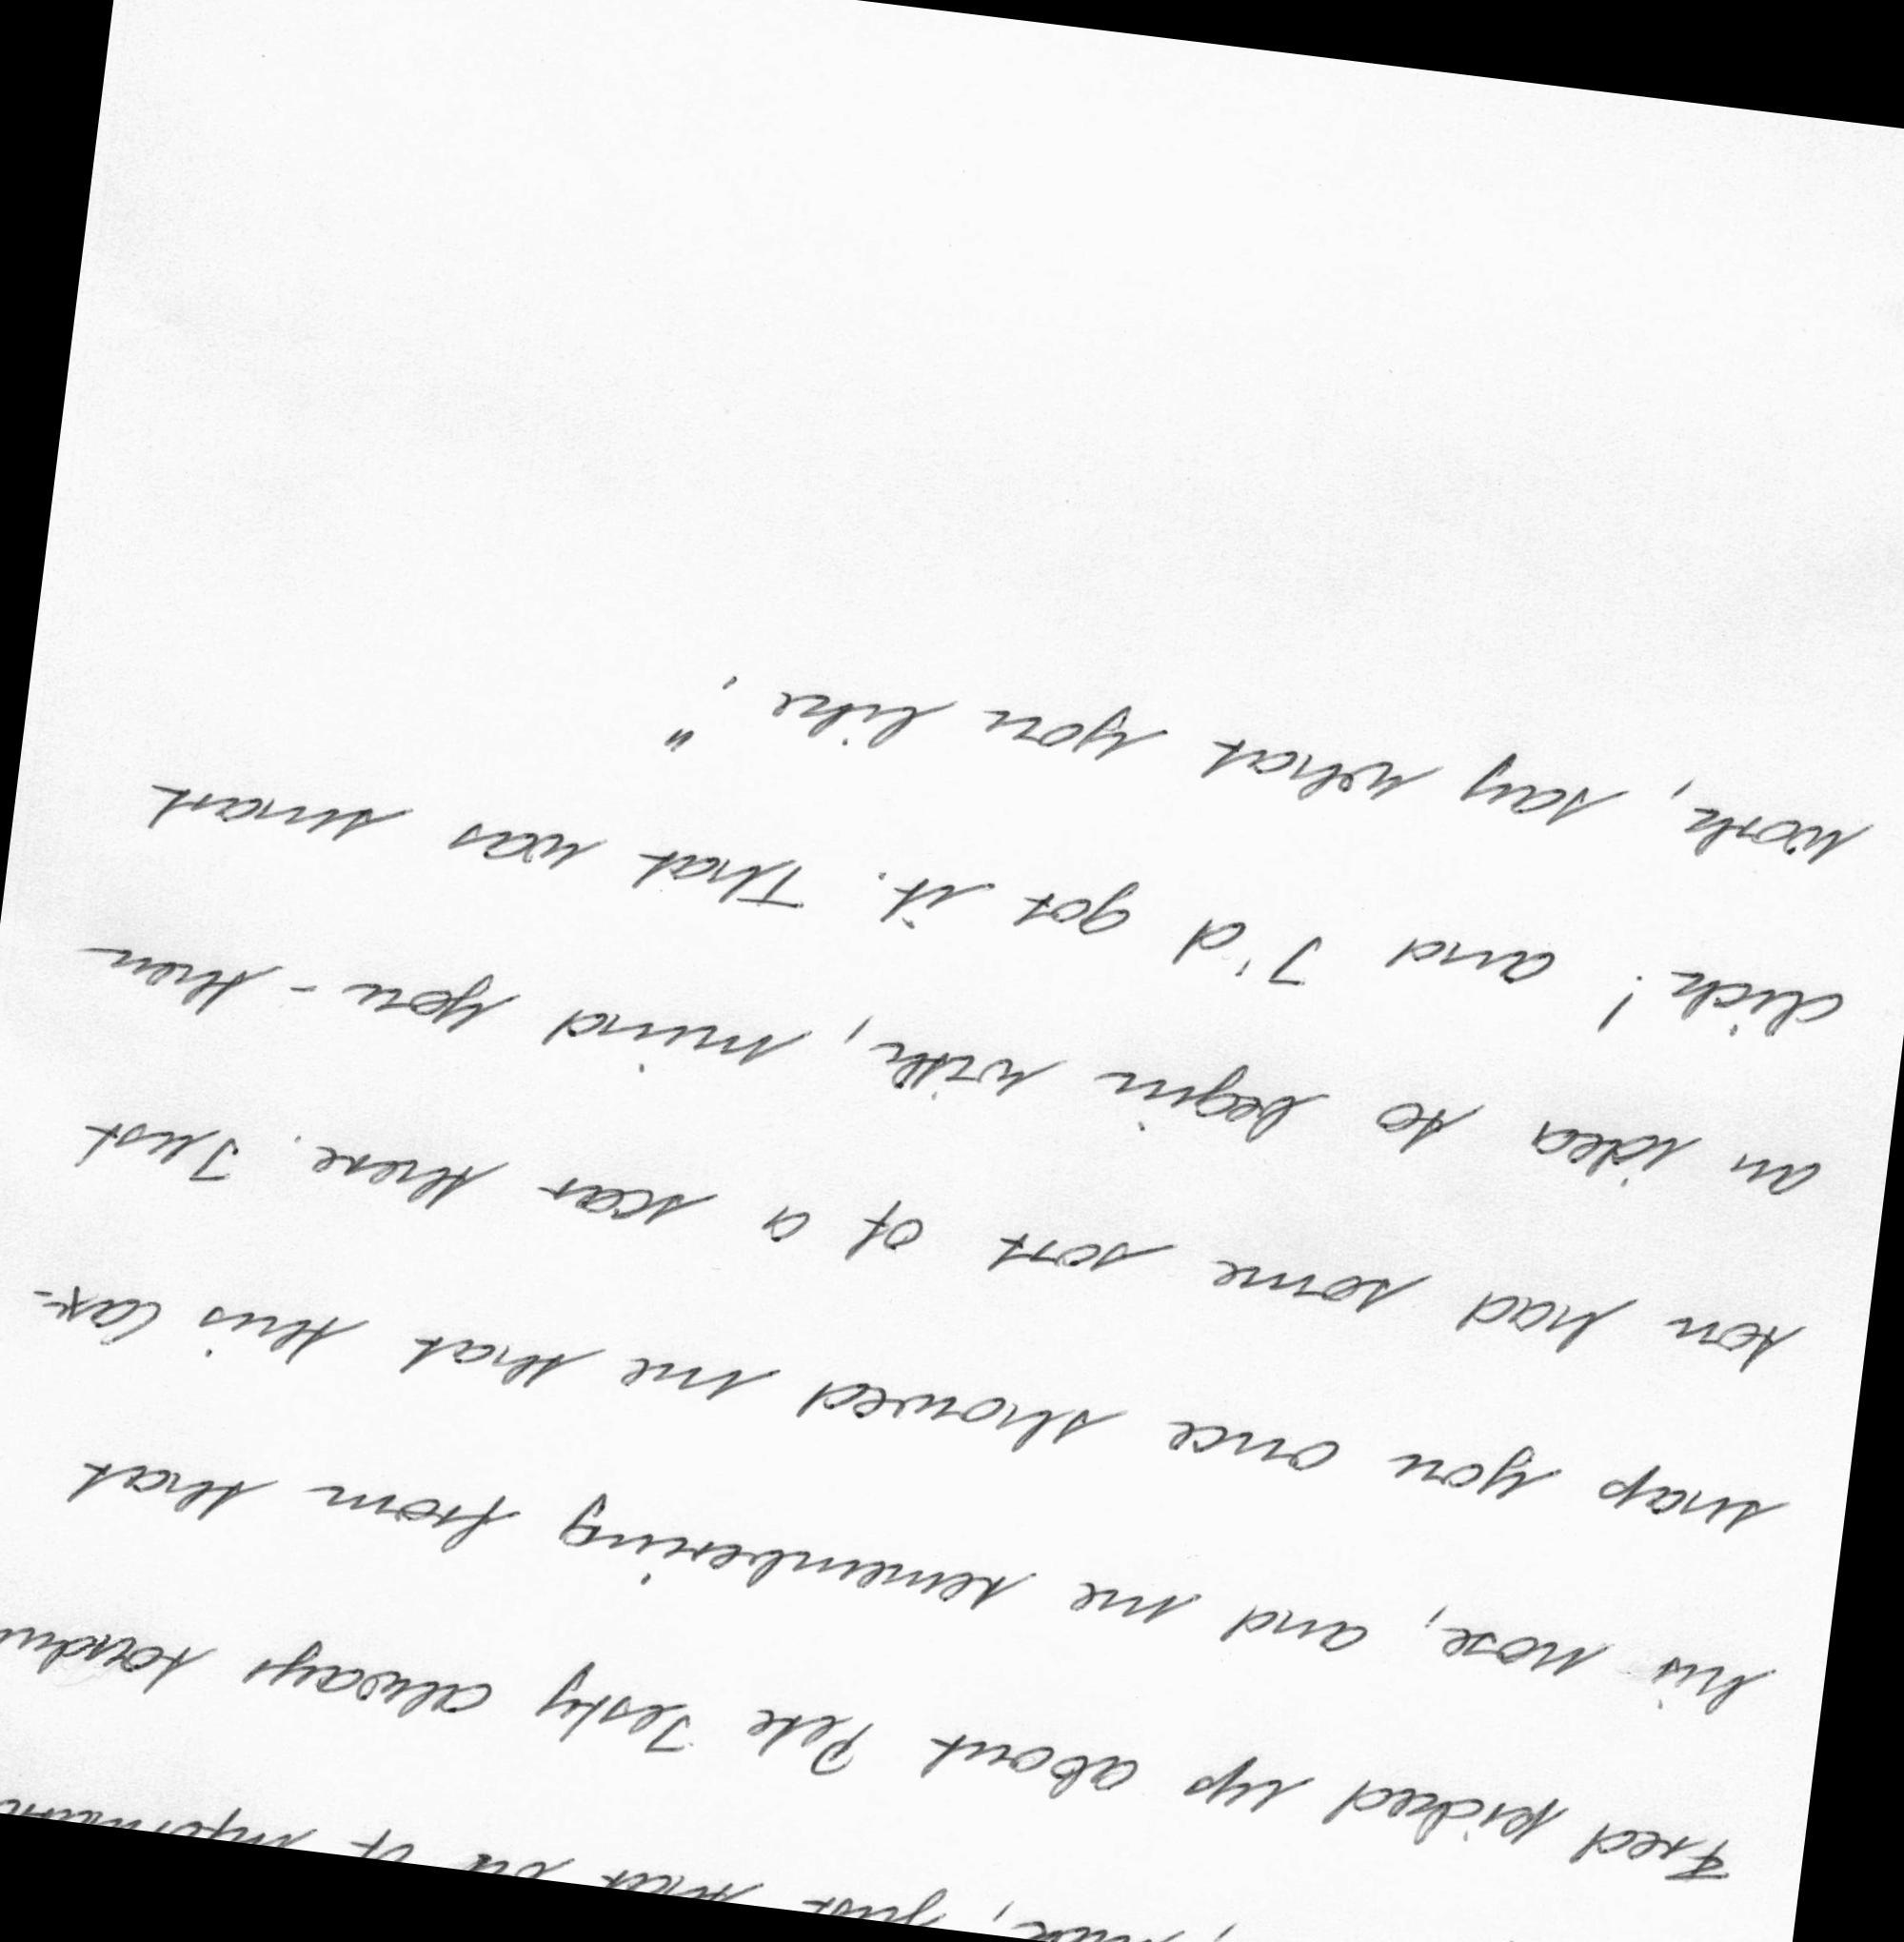 just that bit of
Fred picked up about Pete Jesky always touching
his nose, and me remembering from that
snap you once showed me that this Cax-
ton had some sort of a scar there. Just
an idea to begin with, mind you - then
click! and I'd got it. That was smart
work, say what you like."